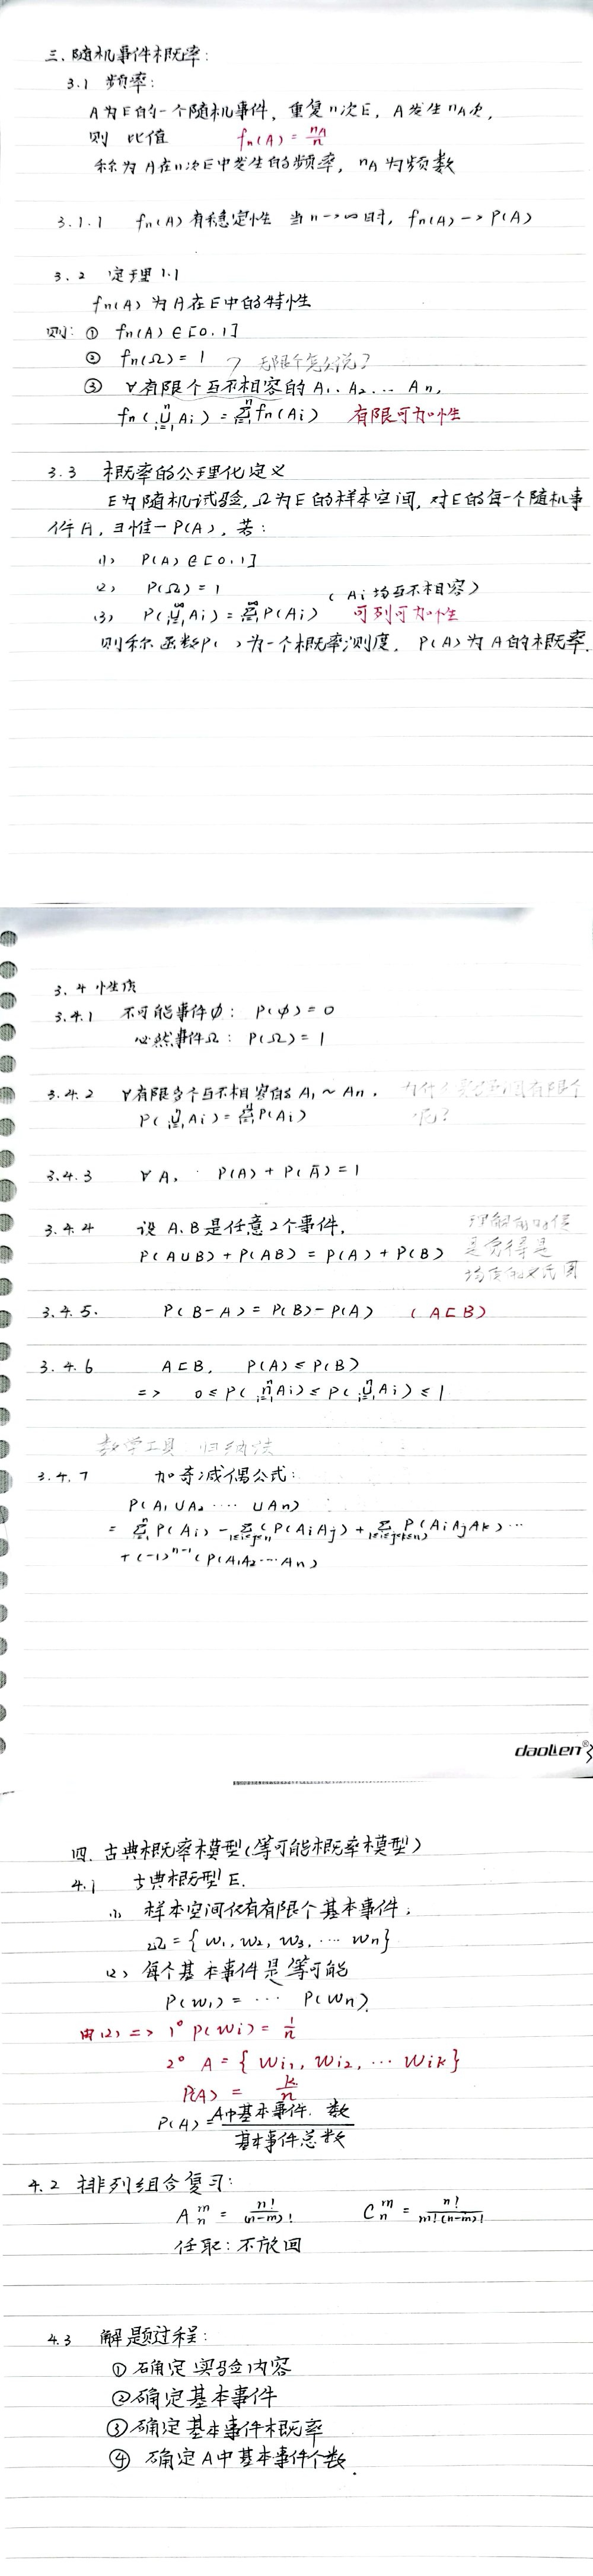 三. 随机事件概率:
3.1 频率:
A为E的一个随机事件, 重复n次E, A发生nA次,
则 比值 fn(A) = nA/n
称为A在n次E中发生的频率, nA为频数
3.1.1 fn(A)有稳定性 当n->∞时, fn(A) -> P(A)
3.2 定理1.1
fn(A)为A在E中的特性
则: ① fn(A) ∈ [0,1]
② fn(Ω) = 1 ? 无限个怎么说?
③ ∀有限个互不相容的A1, A2 … An,
fn(∪ⁿᵢ₌₁ Ai) = Σⁿᵢ₌₁ fn(Ai) 有限可加性
3.3 概率的公理化定义
E为随机试验, Ω为E的样本空间, 对E的每一个随机事
件A, ∃惟一P(A), 若:
(1) P(A) ∈ [0,1]
(2) P(Ω) = 1 (Ai均互不相容)
(3) P(∪^∞ᵢ₌₁ Ai) = Σ^∞ᵢ₌₁ P(Ai) 可列可加性
则称函数P( )为一个概率测度, P(A)为A的概率.
3.4 性质
3.4.1 不可能事件φ: P(φ) = 0
必然事件Ω: P(Ω) = 1
3.4.2 ∀有限多个互不相容的A1 ~ An, 有限个
P(∪ⁿᵢ₌₁ Ai) = Σⁿᵢ₌₁ P(Ai) 呢?
3.4.3 ∀A, P(A) + P(Ā) = 1
3.4.4 设A.B是任意2个事件, 理解的时候
P(A∪B) + P(AB) = P(A) + P(B) 是觉得是
韦氏图
3.4.5. P(B-A) = P(B) - P(A) (A⊏B)
3.4.6 A⊏B, P(A) ≤ P(B)
=> 0 ≤ P(∩ⁿᵢ₌₁ Ai) ≤ P(∪ⁿᵢ₌₁ Ai) ≤ 1
数学工具 归纳法
3.4.7 加奇减偶公式:
P(A1∪A2 … ∪An)
= Σⁿᵢ₌₁ P(Ai) - Σ1≤i<j≤n (P(AiAj) + Σ1≤i<j<k≤n P(AiAjAk) …
+ (-1)ⁿ⁻¹ (P(A1A2 … An)
daolen®
四. 古典概率模型(等可能概率模型)
4.1 古典概型E.
(1) 样本空间仅有有限个基本事件;
Ω = {w1, w2, w3, … wn}
(2) 每个基本事件是等可能
P(w1) = … P(wn).
由(2) => 1° P(wi) = 1/n
2° A = {wi1, wi2, … wik}
P(A) = k/n
P(A) = A中基本事件. 数/基本事件总数
4.2 排列组合复习:
Aₙᵐ = n!/(n-m)! Cₙᵐ = n!/m!(n-m)!
任取: 不放回
4.3 解题过程:
① 确定实验内容
② 确定基本事件
③ 确定基本事件概率
④ 确定A中基本事件个数.